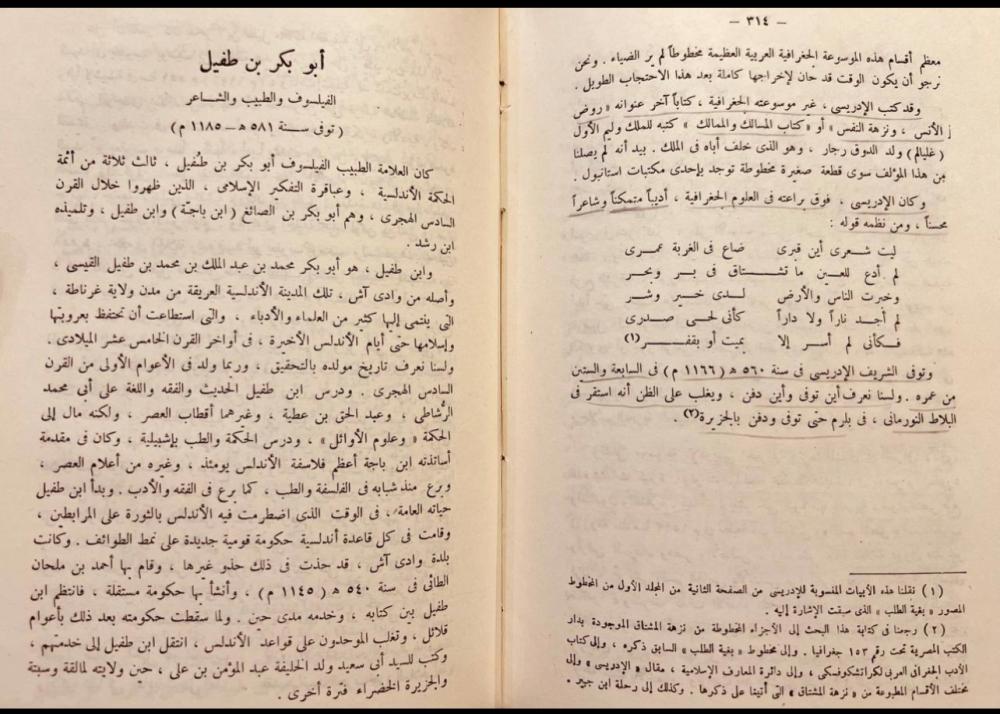 — ٣١٤ —
معظم أقسام هذه الموسوعة الجغرافية العربية العظيمة مخطوطاً لم ير الضياء . ونحن
نرجو أن يكون الوقت قد حان لإخراجها كاملة بعد هذا الاحتجاب الطويل .
وقد كتب الإدريسى ، غير موسوعته الجغرافية ، كتاباً آخر عنوانه « روض
الأنس ، ونزهة النفس » أو « كتاب المسالك والممالك » كتبه للملك وليم الأول
( غليالم ) ولد الدوق رجار ، وهو الذى خلف أباه فى الملك . بيد أنه لم يصلنا
من هذا المؤلف سوى قطعة صغيرة مخطوطة توجد بإحدى مكتبات استانبول .
وكان الإدريسى ، فوق براعته فى العلوم الجغرافية ، أديباً متمكناً وشاعراً
محسناً ، ومن نظمه قوله :
ليت شعرى أين قبرى ضاع فى الغربة عمرى
لم أدع للعين ما تشتاق فى بر وبحر
وخبرت الناس والأرض لدى خير وشر
لم أجد ناراً ولا داراً كأنى لحى صدرى
فكأنى لم أسر إلا بميت أو بقفر (١)
وتوفى الشريف الإدريسى فى سنة ٥٦٠ ه ( ١١٦٦ م ) فى السابعة والستين
من عمره . ولسنا نعرف أين توفى وأين دفن ، ويغلب على الظن أنه استقر فى
البلاط النورمانى ، فى بلرم حتى توفى ودفن بالجزيرة (٢) .
( ١ ) نقلنا هذه الأبيات المنسوبة للإدريسى من الصفحة الثانية من المجلد الأول من المخطوط
المصور « بغية الطلب » الذى سبقت الإشارة إليه .
( ٢ ) رجعنا فى كتابة هذا البحث إلى الأجزاء المخطوطة من نزهة المشتاق الموجودة بدار
الكتب المصرية تحت رقم ١٥٣ جغرافيا . وإلى مخطوط « بغية الطلب » السابق ذكره ، وإلى كتاب
الأدب الجغرافى العربى لكراتشكوفسكى ، وإلى دائرة المعارف الإسلامية ، مقال « الإدريسى » وإلى
مختلف الأقسام المطبوعة من « نزهة المشتاق » التى أتينا على ذكرها . وكذلك إلى رحلة ابن جبير .
أبو بكر بن طفيل
الفيلسوف والطبيب والشاعر
( توفى سنة ٥٨١ ه – ١١٨٥ م )
كان العلامة الطبيب الفيلسوف أبو بكر بن طُفيل ، ثالث ثلاثة من أئمة
الحكمة الأندلسية ، وعباقرة التفكير الإسلامى ، الذين ظهروا خلال القرن
السادس الهجرى ، وهم أبو بكر بن الصائغ ( ابن باجة ) وابن طفيل ، وتلميذه
ابن رشد .
وابن طفيل ، هو أبو بكر محمد بن عبد الملك بن محمد بن طفيل القيسى ،
وأصله من وادى آش ، تلك المدينة الأندلسية العريقة من مدن ولاية غرناطة ،
التى ينتمى إليها كثير من العلماء والأدباء ، والتى استطاعت أن تحتفظ بعروبتها
وإسلامها حتى أيام الأندلس الأخيرة ، فى أواخر القرن الخامس عشر الميلادى .
ولسنا نعرف تاريخ مولده بالتحقيق ، وربما ولد فى الأعوام الأولى من القرن
السادس الهجرى . ودرس ابن طفيل الحديث والفقه واللغة على أبى محمد
الرُّشاطى ، وعبد الحق بن عطية ، وغيرهما أقطاب العصر ، ولكنه مال إلى
الحكمة « وعلوم الأوائل » ، ودرس الحكمة والطب بإشبيلية ، وكان فى مقدمة
أساتذته ابن باجة أعظم فلاسفة الأندلس يومئذ ، وغيره من أعلام العصر ،
وبرع منذ شبابه فى الفلسفة والطب ، كما برع فى الفقه والأدب . وبدأ ابن طفيل
حياته العامة ، فى الوقت الذى اضطرمت فيه الأندلس بالثورة على المرابطين ،
وقامت فى كل قاعدة أندلسية حكومة قومية جديدة على نمط الطوائف . وكانت
بلدة وادى آش ، قد حذت فى ذلك حذو غيرها ، وقام بها أحمد بن ملحان
الطائى فى سنة ٥٤٠ ه ( ١١٤٥ م ) ، وأنشأ بها حكومة مستقلة ، فانتظم ابن
طفيل بين كتابه ، وخدمه مدى حين . ولما سقطت حكومته بعد ذلك بأعوام
قلائل ، وتغلب الموحدون على قواعد الأندلس ، انتقل ابن طفيل إلى خدمتهم ،
وكتب للسيد أبى سعيد ولد الخليفة عبد المؤمن بن على ، حين ولايته لمالقة وسبتة
والجزيرة الخضراء فترة أخرى .